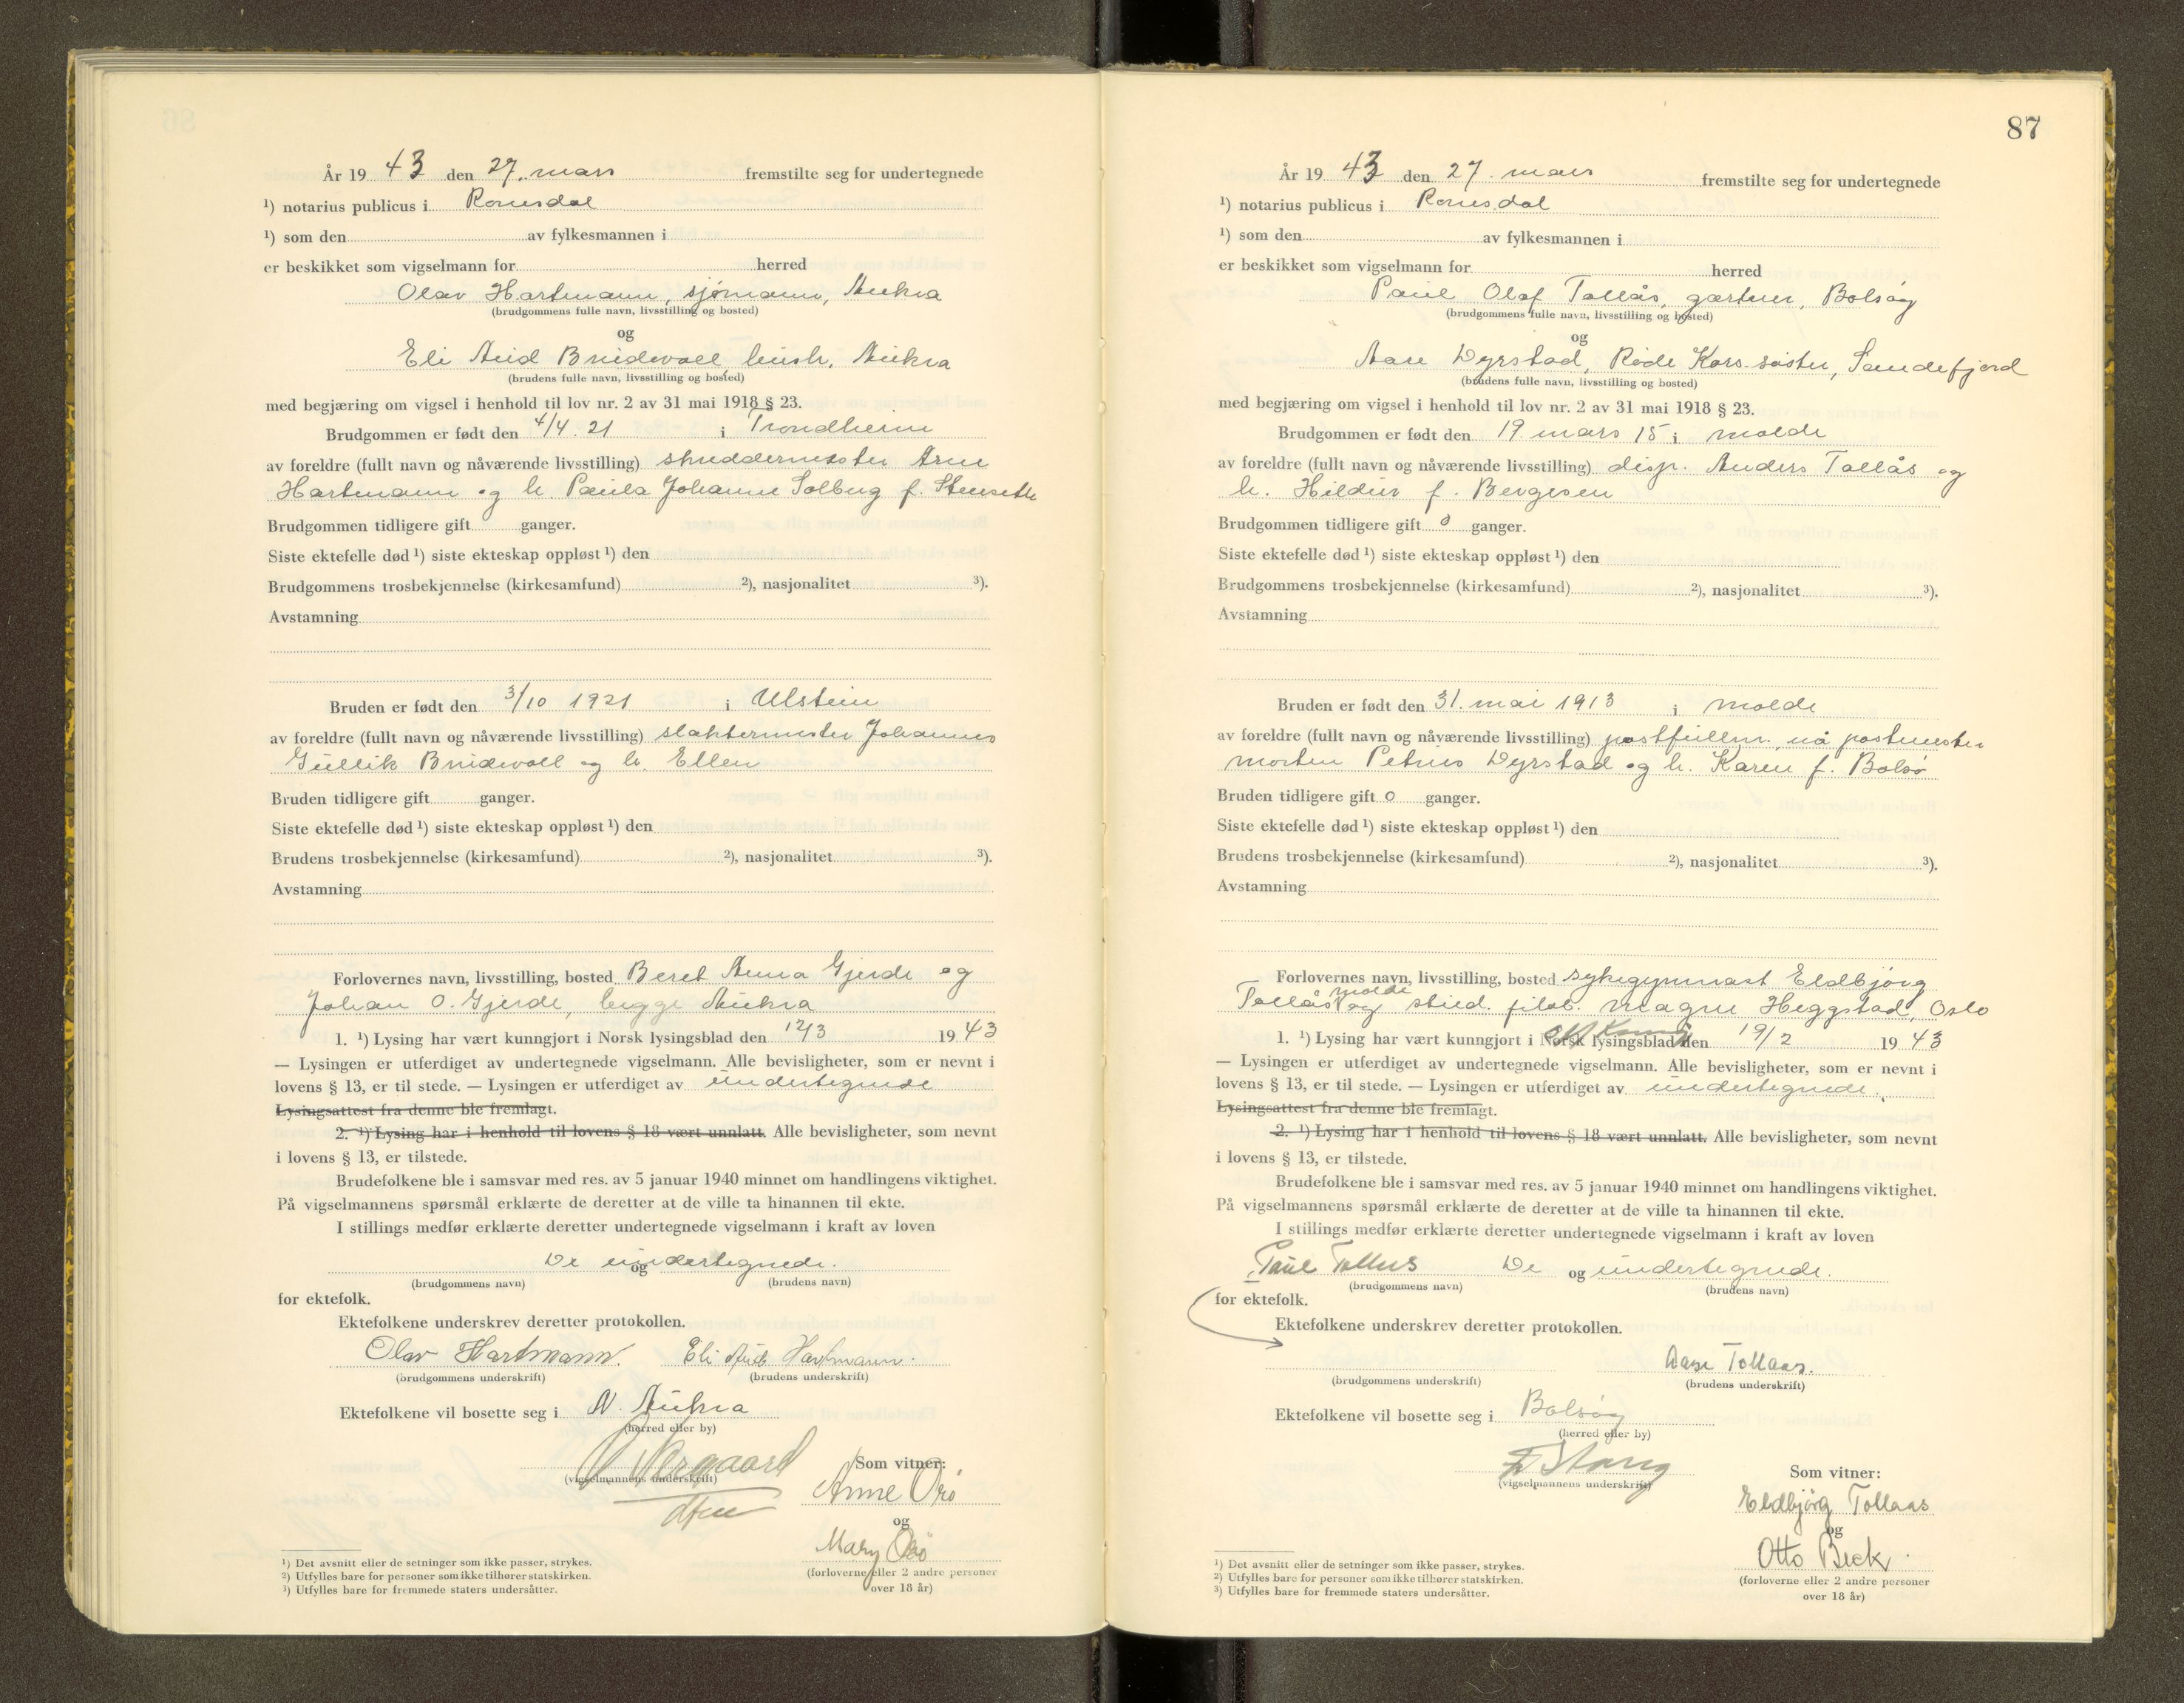 År 19 43 den 27. mars fremstilte seg for undertegnede
¹) notarius publicus i Romsdal
¹) som den av fylkesmannen i
er beskikket som vigselmann for herred
Olav Hartmann, sjømann, Aukra
(brudgommens fulle navn, livsstilling og bosted)
og
Eli Aud Brudevoll, hush. Aukra
(brudens fulle navn, livsstilling og bosted)
med begjæring om vigsel i henhold til lov nr. 2 av 31 mai 1918 § 23.
Brudgommen er født den 4/4. 21 i Trondheim
av foreldre (fullt navn og nåværende livsstilling) skreddermester Arne
Hartmann og h. Paula Johanne Solbug f. Stenseth
Brudgommen tidligere gift ganger.
Siste ektefelle død ¹) siste ekteskap oppløst ¹) den
Brudgommens trosbekjennelse (kirkesamfund) ²), nasjonalitet ³).
Avstamning
Bruden er født den 3/10 1921 i Ulstein
av foreldre (fullt navn og nåværende livsstilling) slaktermester Johannes
Gullik Brudevoll og h. Ellen
Bruden tidligere gift ganger.
Siste ektefelle død ¹) siste ekteskap oppløst ¹) den
Brudens trosbekjennelse (kirkesamfund) ²), nasjonalitet ³).
Avstamning
Forlovernes navn, livsstilling, bosted Beret Anna Gjerde og
Johan O. Gjerde, begge Aukra
1. ¹) Lysing har vært kunngjort i Norsk lysingsblad den 12/3 19 43
— Lysingen er utferdiget av undertegnede vigselmann. Alle bevisligheter, som er nevnt i
lovens § 13, er til stede. — Lysingen er utferdiget av undertegnede
Lysingsattest fra denne ble fremlagt.
2. ¹) Lysing har i henhold til lovens § 18 vært unnlatt. Alle bevisligheter, som nevnt
i lovens § 13, er tilstede.
Brudefolkene ble i samsvar med res. av 5 januar 1940 minnet om handlingens viktighet.
På vigselmannens spørsmål erklærte de deretter at de ville ta hinannen til ekte.
I stillings medfør erklærte deretter undertegnede vigselmann i kraft av loven
De undertegnede.
og
(brudgommens navn) (brudens navn)
for ektefolk.
Ektefolkene underskrev deretter protokollen.
Olav Hartmann. Eli Aud Hartmann.
(brudgommens underskrift) (brudens underskrift)
Ektefolkene vil bosette seg i N. Aukra
(herred eller by)
(vigselmannens underskrift)
Som vitner:
Anne Orö
og
Mary Orö
(forloverne eller 2 andre personer
over 18 år)
¹) Det avsnitt eller de setninger som ikke passer, strykes.
²) Utfylles bare for personer som ikke tilhører statskirken.
³) Utfylles bare for fremmede staters undersåtter.
87
År 19 43 den 27. mars fremstilte seg for undertegnede
¹) notarius publicus i Romsdal
¹) som den av fylkesmannen i
er beskikket som vigselmann for herred
Paul Olaf Tollås, gartner, Bolsøy
(brudgommens fulle navn, livsstilling og bosted)
og
Aase Dyrstad, Røde Kors-søster, Sandefjord
(brudens fulle navn, livsstilling og bosted)
med begjæring om vigsel i henhold til lov nr. 2 av 31 mai 1918 § 23.
Brudgommen er født den 19. mars 15 i Molde
av foreldre (fullt navn og nåværende livsstilling) disp. Anders Tollås og
h. Hildur f. Bergesen
Brudgommen tidligere gift 0 ganger.
Siste ektefelle død ¹) siste ekteskap oppløst ¹) den
Brudgommens trosbekjennelse (kirkesamfund) ²), nasjonalitet ³).
Avstamning
Bruden er født den 31. mai 1913 i Molde
av foreldre (fullt navn og nåværende livsstilling) postfullm., nå postmester
Morten Petrus Dyrstad og h. Karen f. Bolsø
Bruden tidligere gift 0 ganger.
Siste ektefelle død ¹) siste ekteskap oppløst ¹) den
Brudens trosbekjennelse (kirkesamfund) ²), nasjonalitet ³).
Avstamning
Forlovernes navn, livsstilling, bosted sykegymnast Eldbjørg
Tollås Molde og stud. filol. Magne Heggstad, Oslo
1. ¹) Lysing har vært kunngjort i Norsk lysingsblad den 19/2 19 43
— Lysingen er utferdiget av undertegnede vigselmann. Alle bevisligheter, som er nevnt i
lovens § 13, er til stede. — Lysingen er utferdiget av undertegnede.
Lysingsattest fra denne ble fremlagt.
2. ¹) Lysing har i henhold til lovens § 18 vært unnlatt. Alle bevisligheter, som nevnt
i lovens § 13, er tilstede.
Brudefolkene ble i samsvar med res. av 5 januar 1940 minnet om handlingens viktighet.
På vigselmannens spørsmål erklærte de deretter at de ville ta hinannen til ekte.
I stillings medfør erklærte deretter undertegnede vigselmann i kraft av loven
Paul Tollås De og undertegnede.
(brudgommens navn) (brudens navn)
for ektefolk.
Ektefolkene underskrev deretter protokollen.
Aase Tollaas.
(brudgommens underskrift) (brudens underskrift)
Ektefolkene vil bosette seg i Bolsøy
(herred eller by)
(vigselmannens underskrift)
Som vitner:
Eldbjörg Tollaas
og
Otto Beck.
(forloverne eller 2 andre personer
over 18 år)
¹) Det avsnitt eller de setninger som ikke passer, strykes.
²) Utfylles bare for personer som ikke tilhører statskirken.
³) Utfylles bare for fremmede staters undersåtter.